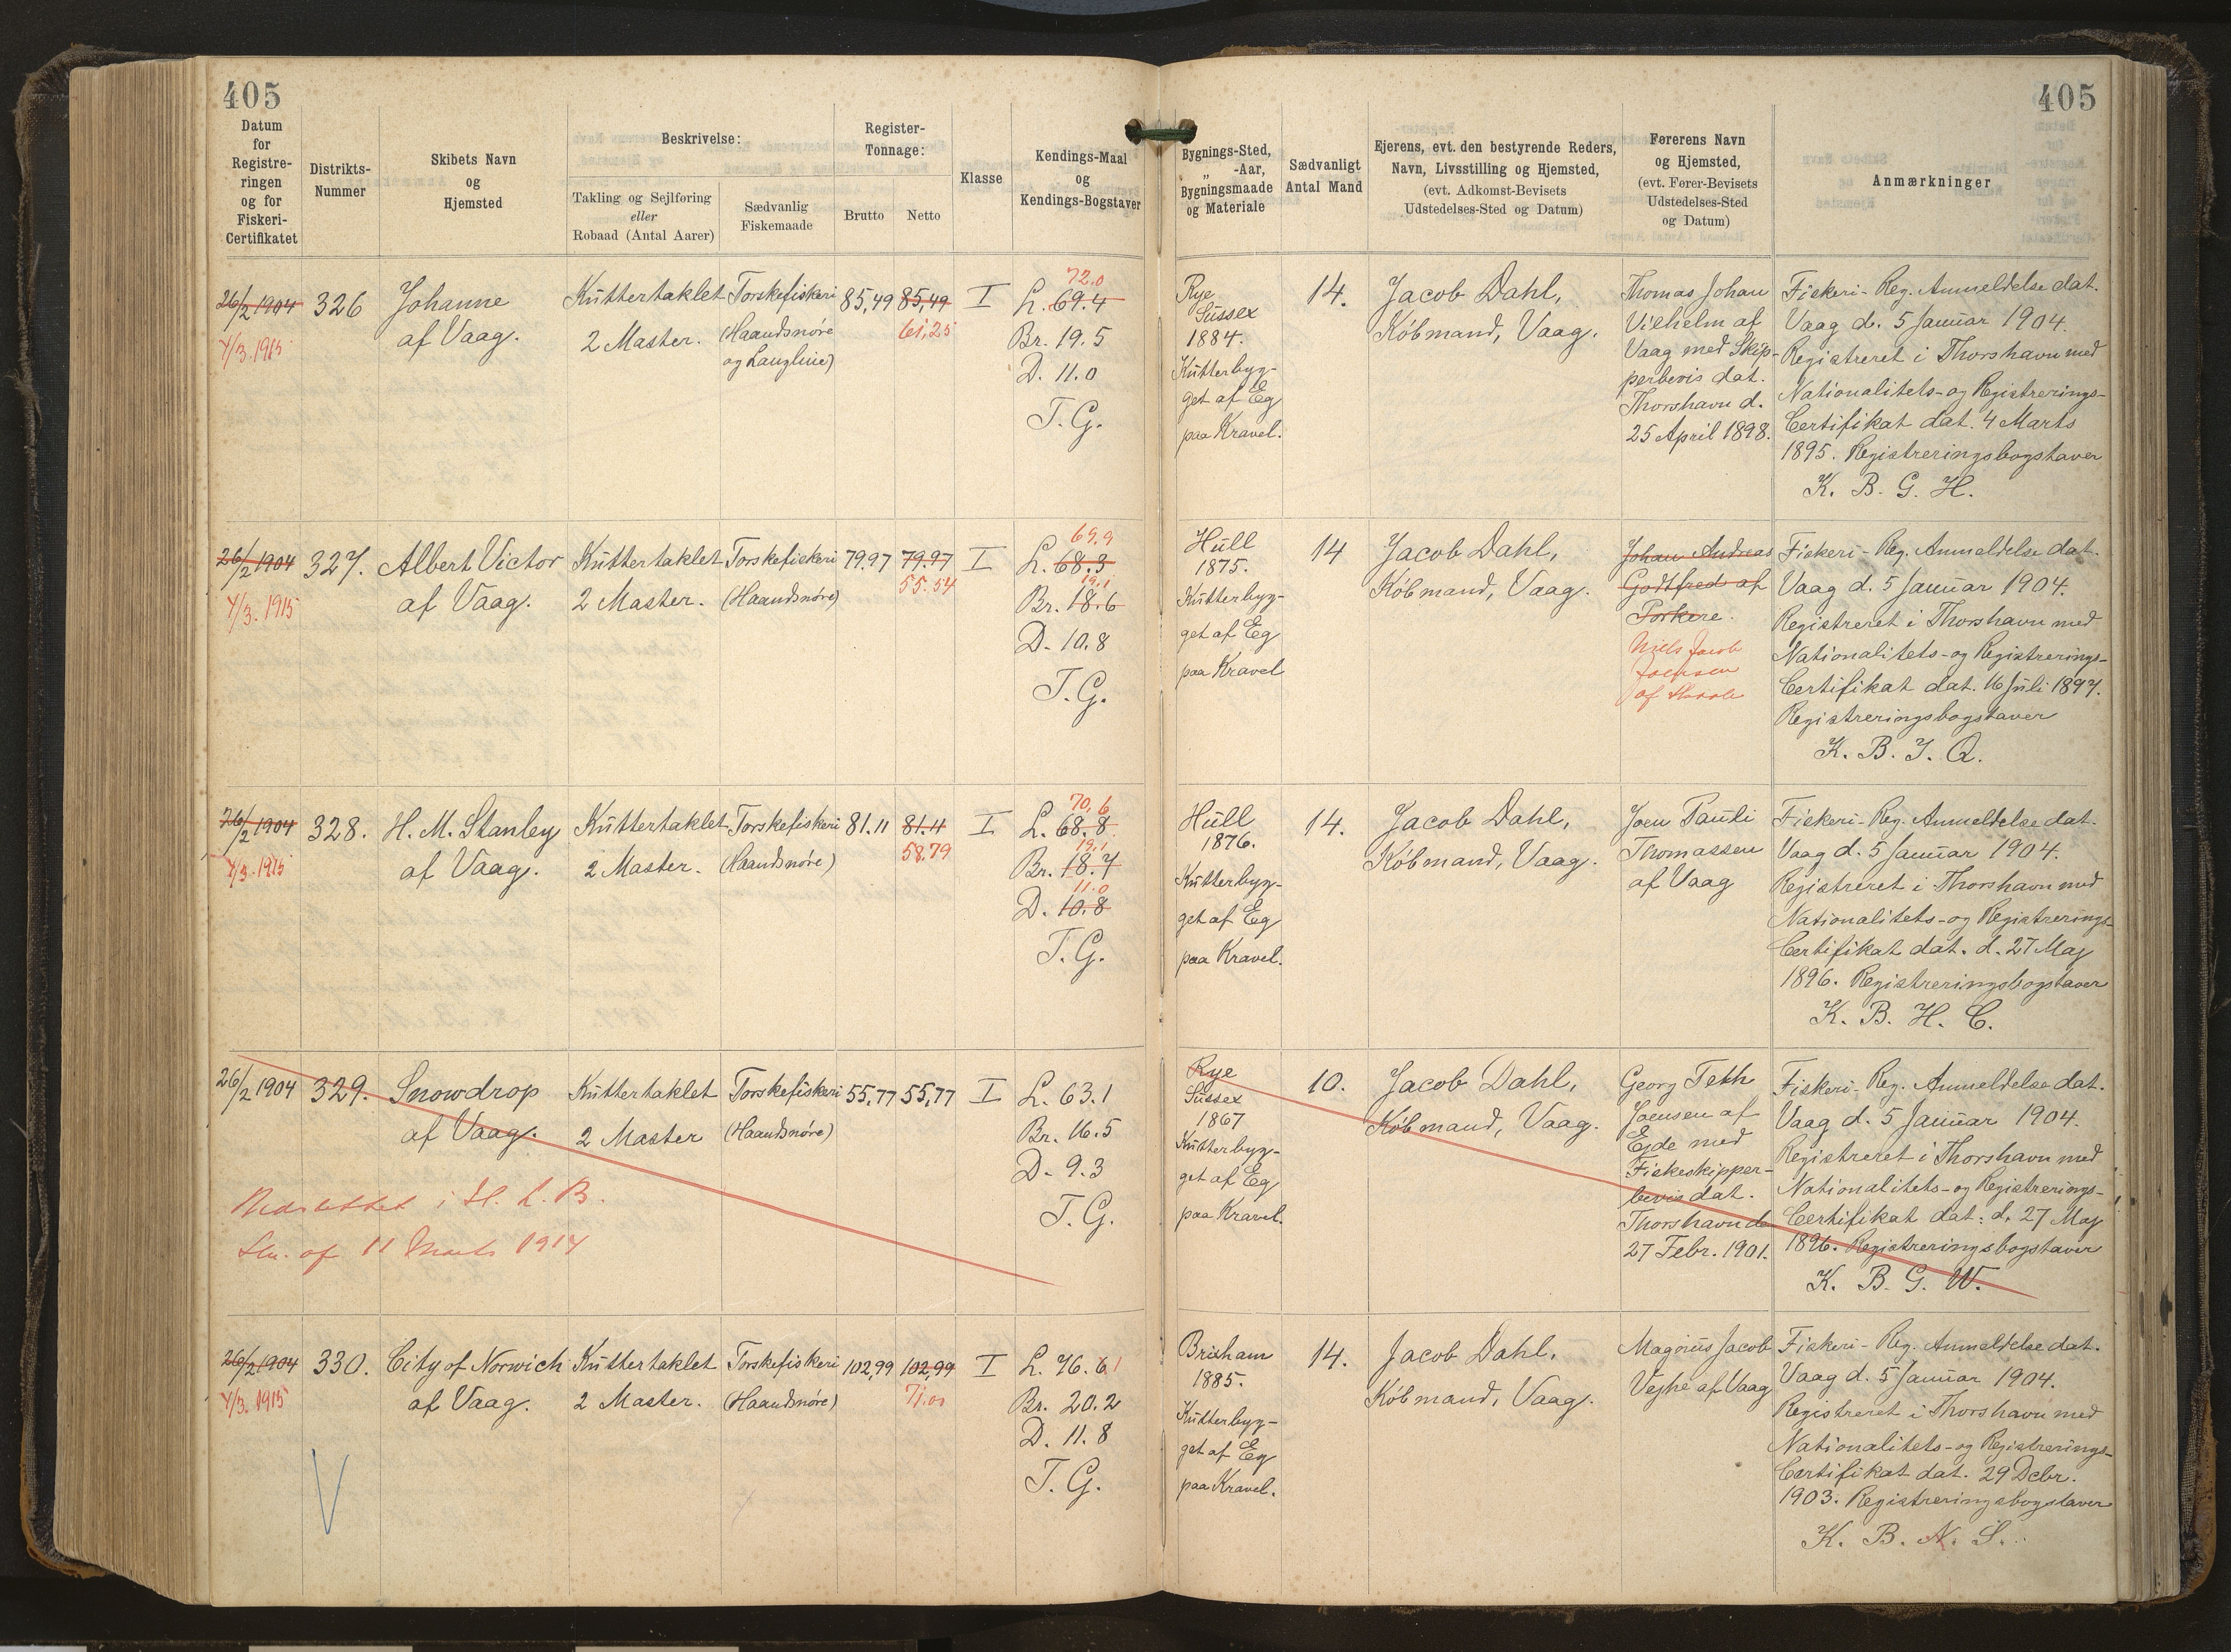 405
405
Datum
for
Registre-
ringen
og for
Fiskeri-
Certifikatet
Distrikts-
Nummer
Skibets Navn
og
Hjemsted
Beskrivelse:
Takling og Sejlføring
eller
Robaad (Antal Aarer)
Sædvanlig
Fiskemaade
Register-
Tonnage:
Brutto
Netto
Klasse
Kendings-Maal
og
Kendings-Bogstaver
Bygnings-Sted,
„ -Aar,
Bygningsmaade
og Materiale
Sædvanligt
Antal Mand
Ejerens, evt. den bestyrende Reders,
Navn, Livsstilling og Hjemsted,
(evt. Adkomst-Bevisets
Udstedelses-Sted og Datum)
Førerens Navn
og Hjemsted,
(evt. Fører-Bevisets
Udstedelses-Sted
og Datum)
Anmærkninger
26/2 1904
4/3. 1915
326
Johanne
af Vaag.
Kuttertaklet
2 Master.
Torskefiskeri
(Haandsnøre
og Langline)
85,49
85,49
61,25
I
72.0
L. 69.4
Br. 19.5
D. 11.0
T. G.
Rye
Sussex
1884.
Kutterbyg-
get af Eg
paa Kravel.
14.
Jacob Dahl,
Købmand, Vaag.
Thomas Johan
Vilhelm af
Vaag med Skip-
perbevis dat.
Thorshavn d.
25 April 1898.
Fiskeri-Reg. Anmeldelse dat.
Vaag d. 5 Januar 1904.
Registreret i Thorshavn med
Nationalitets- og Registrerings-
Certifikat dat. 4 Marts
1895. Registreringsbogstaver
K. B. G. H.
26/2 1904
4/3. 1915
327.
Albert Victor
af Vaag.
Kuttertaklet
2 Master.
Torskefiskeri
(Haandsnøre)
79.97
79.97
55.54
I
69.9
L. 68.3
19.1
Br. 18.6
D. 10.8
T. G.
Hull
1875.
Kutterbyg-
get af Eg
paa Kravel
14
Jacob Dahl,
Købmand, Vaag.
Johan Andreas
Godtfred af
Porkere.
Niels Jacob
Joensen
af
Fiskeri-Reg. Anmeldelse dat.
Vaag d. 5 Januar 1904.
Registreret i Thorshavn med
Nationalitets- og Registrerings-
Certifikat dat. 16 Juli 1897.
Registreringsbogstaver
K. B. J. Q.
26/2 1904
4/3. 1915
328.
H. M. Stanley
af Vaag.
Kuttertaklet
2 Master.
Torskefiskeri
(Haandsnøre)
81.11
81.11
58.79
I
70,6
L. 68.8
19,1
Br. 18.7
11.0
D. 10.8
T. G.
Hull
1876.
Kutterbyg-
get af Eg
paa Kravel.
14.
Jacob Dahl,
Købmand, Vaag.
Joen Pauli
Thomassen
af Vaag
Fiskeri-Reg. Anmeldelse dat.
Vaag d. 5 Januar 1904.
Registreret i Thorshavn med
Nationalitets- og Registrerings-
Certifikat dat. d. 27 Maj
1896. Registreringsbogstaver
K. B. H. C.
26/2 1904
329.
Snowdrop
af Vaag.
Kuttertaklet
2 Master
Torskefiskeri
(Haandsnøre)
55,77
55,77
I
L. 63.1
Br. 16.5
D. 9.3
T. G.
af 11 Marts 1914
Rye
Sussex
1867
Kutterbyg-
get af Eg
paa Kravel.
10.
Jacob Dahl,
Købmand, Vaag.
Georg Teth
Joensen af
Ejde med
Fiskeskipper-
bevis dat.
Thorshavn d.
27 Febr. 1901.
Fiskeri-Reg. Anmeldelse dat.
Vaag d. 5 Januar 1904.
Registreret i Thorshavn med
Nationalitets- og Registrerings-
Certifikat dat. d. 27 Maj
1896. Registreringsbogstaver
K. B. G. W.
26/2 1904
4/3. 1915
330.
City of Norwich
af Vaag.
Kuttertaklet
2 Master.
Torskefiskeri
(Haandsnøre)
102,99
102,99
71.00
I
L. 76.61
Br. 20.2
D. 11.8
T. G.
Brixham
1885.
Kutterbyg-
get af Eg
paa Kravel.
14.
Jacob Dahl,
Købmand, Vaag.
Magnus Jacob
Vejhe af Vaag
Fiskeri-Reg. Anmeldelse dat.
Vaag d. 5 Januar 1904.
Registreret i Thorshavn med
Nationalitets- og Registrerings-
Certifikat dat. 29 Decbr.
1903. Registreringsbogstaver
K. B. N. S.